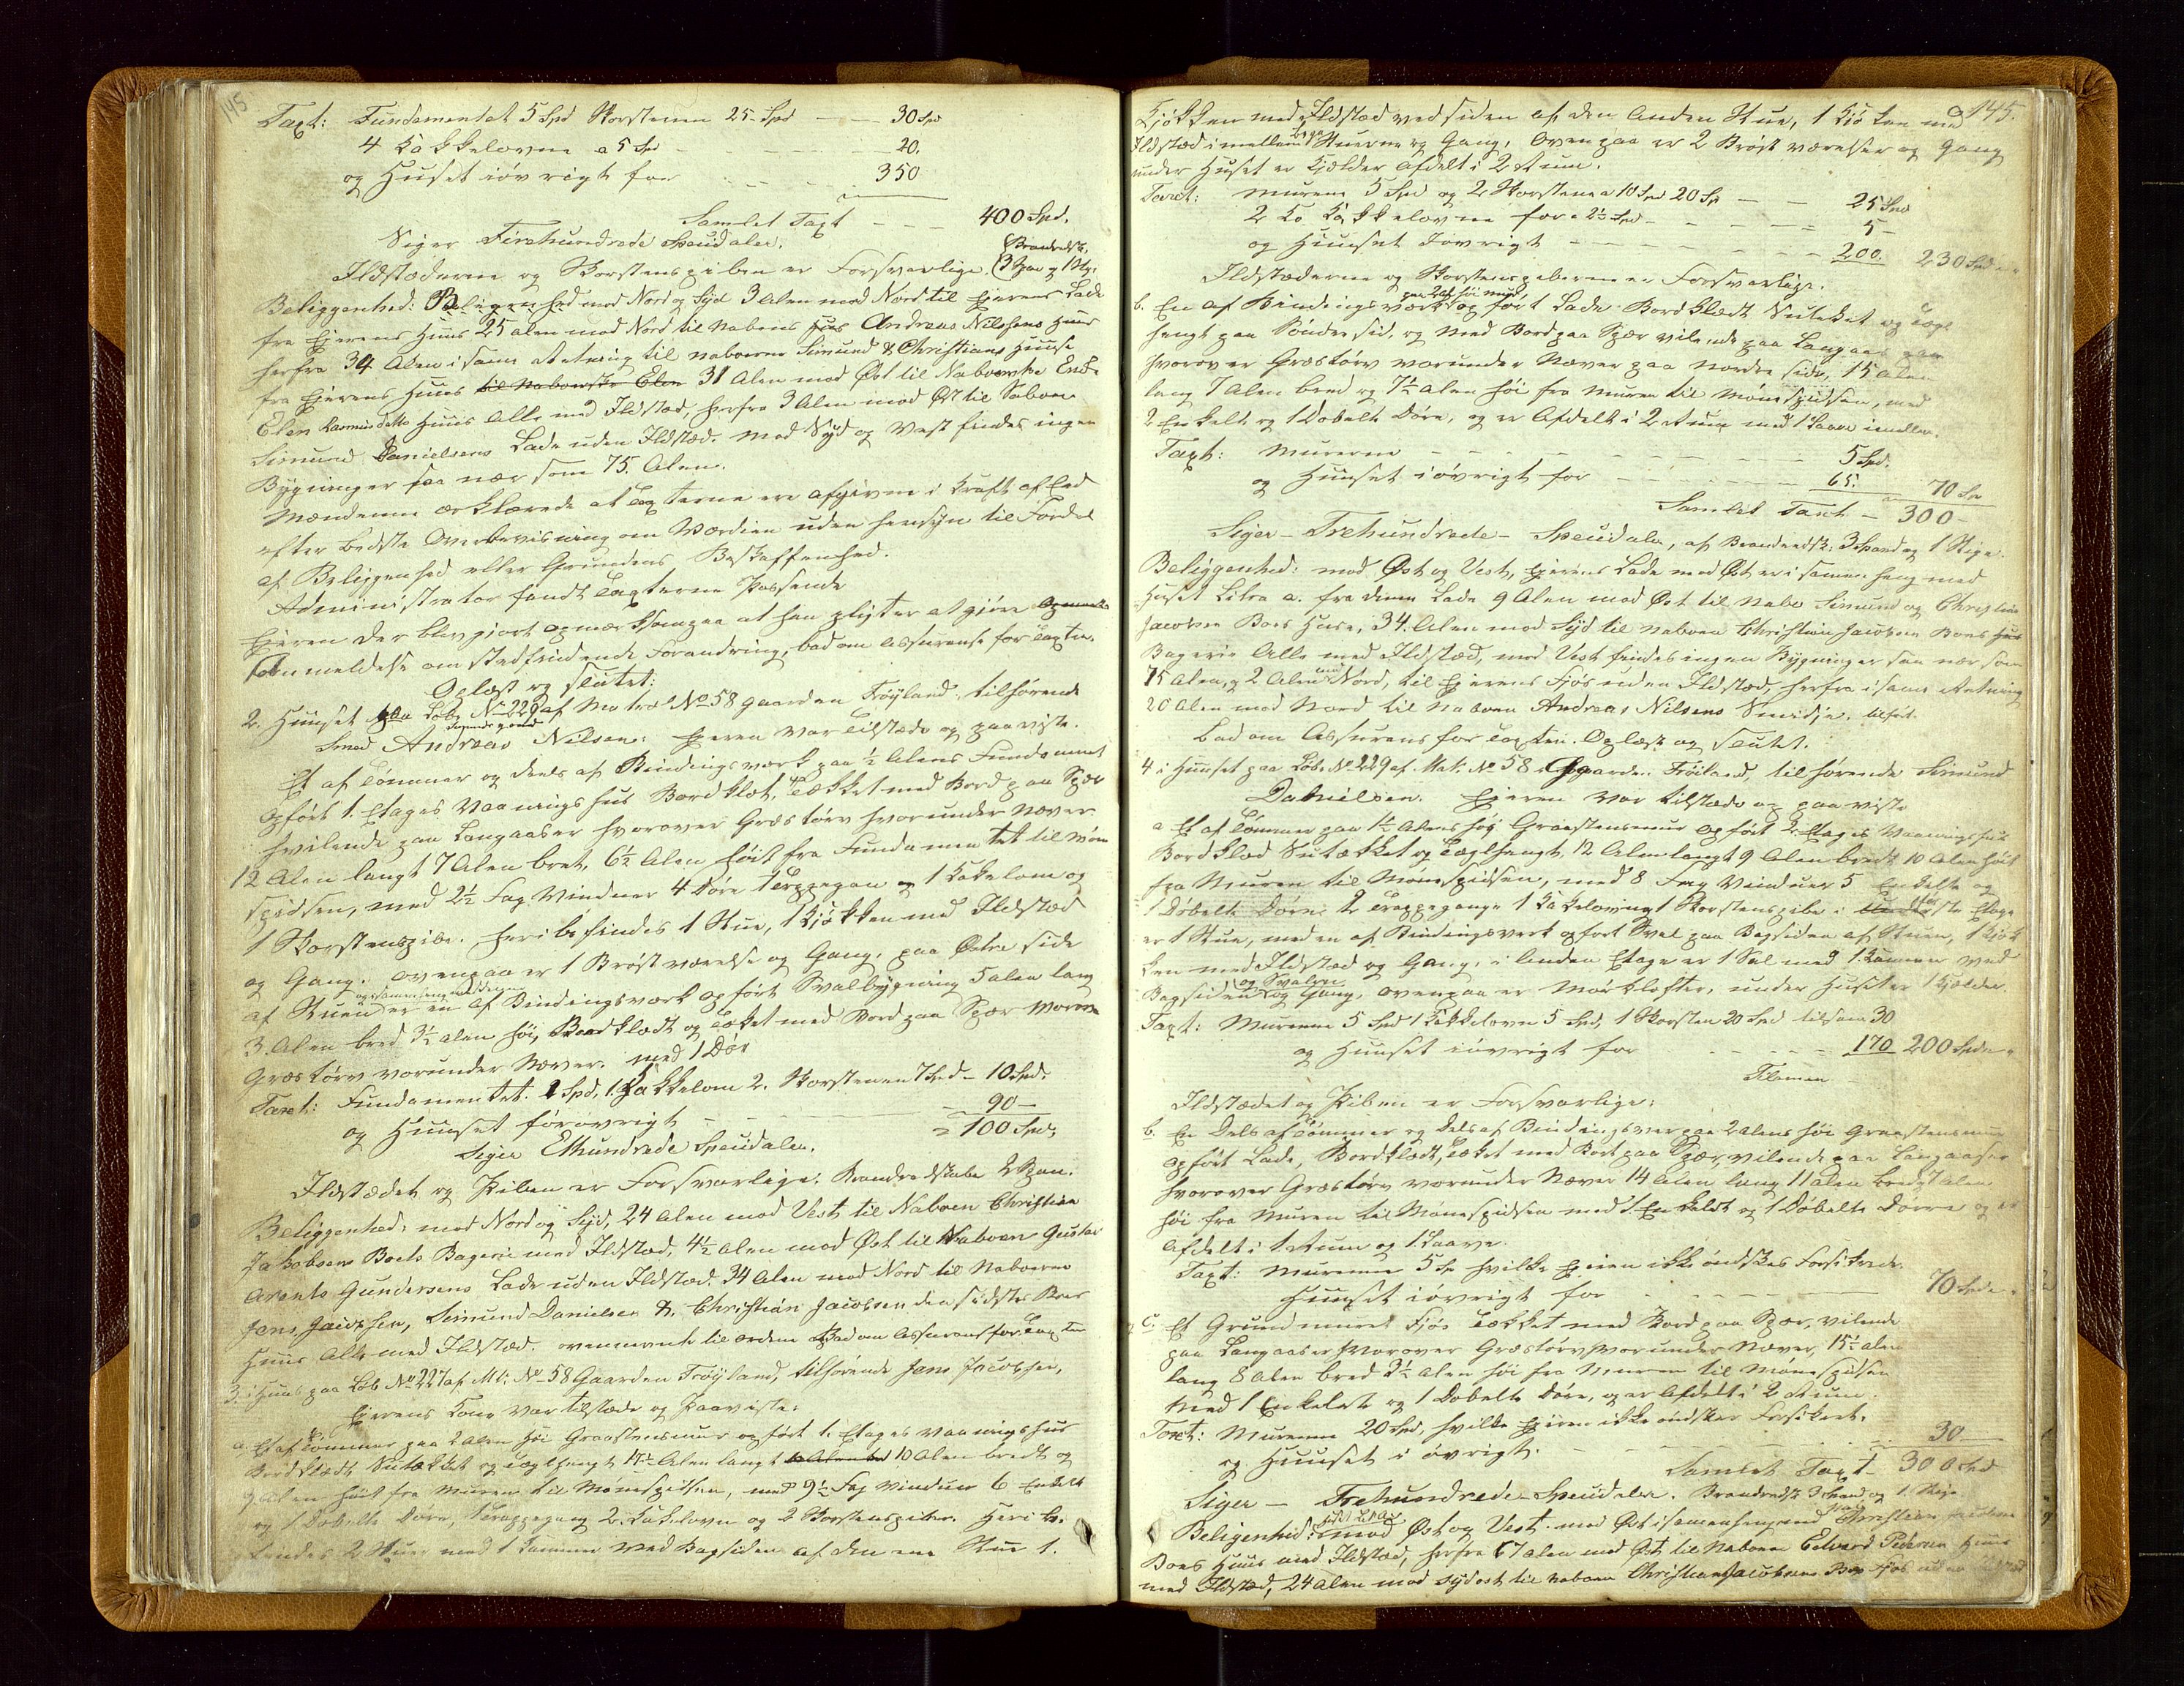 145
Taxt: Fundamentet 5 Spd Skorstenen 25 Spd — — 30 Spd
4 Kakkelovne a 5 Spd — — 20.
og Huset iøvrigt for — — 350
Samlet Taxt — — 400 Spd.
Siger Firehundrede Speudaler. Brandredsk.
Ildstæderne og Skorstenspiben er Forsvarlige. 3 Span og 1 Stige
Beliggenhed: mod Nord og Syd 3 Alen mod Nord til Ejerens Lade
fra Ejerens Huus 25 alen mod Nord til Naboens Andreas Nilssens Huus
herfra 34 Alen i samme Retning til naboerne Simund & Christians Huuse
fra Ejerens Huus til Naboerske Elen 31 Alen mod Øst til Naboerske Enke
Elen Rasmusdatts Huus Alle med Ildsted, herfra 3 Alen mod Øst til Naboen
Simund Danielsens Lade uden Ildsted. mod Syd og Vest findes ingen
Bygninger saa nær som 75 Alen.
Mændene erklærede at Taxterne ere afgivne i Kraft af Eed
efter bedste Overbevisning om Værdien uden hensyn til Fordel
af Beliggenhed eller Grundens Beskaffenhed.
Administrator fandt Taxterne Passende
Ejeren der blev gjort opmærksom paa at han pligter at gjøre
Anmeldelse om stedfindende Forandring, bad om Assurense for Taxten.
Oplæst og slutet:
2. Huuset paa Løb No 228 af Matr No 58 Gaarden Frøyland, tilhørende
Smed Andreas Nilsen: Ejeren var tilstæde og paaviste.
Et af Tømmer og deels af Bindingsværk paa ½ Alens Fundament
opført 1. Etages Vaaningshus Bordklæt, tækket med Bord paa Spær
hvilende paa Langaaser hvorover Græstørv hvorunder Næver
12 Alen langt 7 Alen bret, 6½ Alen høit fra Fundamentet til Møn
spidsen, med 2½ Fag Vinduer 4 Døre 1 Trappegan og 1 Kakelovn og
1 Skorstenspibe. heri befindes 1 Stue, 1 Kjøkken med Ildsted
og Gang. ovenpaa er 1 Brøstværelse og Gang. paa Østre side
af Stuen er en af Bindingsværk opført Svalbygning 5 alen lang
3 Alen bred 3½ alen høi, Bordklædt og tæket med Bord paa Spær
Græstørv vorunder Næver. med 1 Dør
Taxt: Fundamentet 1 Spd, 1 Kakkelovn 2. Skorstenen 7 Spd — 10 Spd.
og Huuset førøvrigt — — 90 —
Siger Ethundrede Speudaler. = 100 Spd.
Ildstædet og Piben er Forsvarlige. Brandredskabe 2 Span.
Beliggenhed: mod Nord og Syd, 24 Alen mod Vest til Naboen Christian
Jakobsens Boets Bageri med Ildstæd, 4½ Alen mod Øst til Naboen Gustav
Arents Gundersens Lade uden Ildstæd. 34 Alen mod Nord til Naboerne
Jens Jacobsen, Simund Danielsen & Christian Jacobsen den sidstes Boes
Huus Alle med Ildstæd. Bad om Assuranse for Taxten
3. i Huus paa Løb No 227 af Mt: No 58 Gaarden Frøyland, tilhørende Jens Jacobsen,
Ejerens Kone var tilstæde og Paaviste:
a. Et af Tømmer paa 2 alen høi Graastensmur opført 1. Etages Vaaningshus
Bordklædt Sutækket og tæglhengt 15½ Alen langt 10 Alen bredt og
9 Alen høit fra Muren til Mønespidsen, med 9½ Fag Vinduer 6 Enkelt
og 1 Dobelte Døre, 1 Trappegang 2. Kakelovn og 2 Skorstenspiber. Heri be-
findes 2 Stuer med 1 Kammer ved Bagsiden af den ene Stue 1.
145.
Kjøkken med Ildstæd ved siden af den Anden Stue, 1 Kjøken med
Ildstæd imellem Stuerne og Gang, Ovenpaa er 2 Brøst værelser og Gang
under Huset er Kjelder Afdelt i 2 Rum.
Taxt: Murene 5 Spd og 2 Skorstene a 10 Spd 20 Sp — — 25 Spd
2 Kakkelovne for a 2½ Spd — — 5 —
og Huuset Iøvrigt — — 200. 230 Spd
Ildstæderne og Skorstenspiberne er Forsvarlige.
b. En af Bindingsværk opført Lade Bordklædt Sutækt og Tægl
hengt paa Søndre sid, og med Bord paa Spær vilende paa Langaas
hvorover Græstørv vorunder Næver paa nordre side, 15 alen
lang 7 Alen bred og 7½ alen høi fra Muren til Mønespidsen, med
2 Enkelt og 1 Dobelt Døre, og er Afdelt i 2 Rum med 1 Laave imellem.
Taxt: Murene — — 5 Spd.
og Huuset iøvrigt for — — 65. 70 Sp
Samlet Taxt — 300 —
Siger — Trehundrede — Speudaler, af Brandredsk: 3 Spand og 1 Stige.
Beliggenhed: mod Øst og Vest, Ejerens Lade mod Øst er i sammenheng med
Huset Litra a. fra denne Lade 9 Alen mod Øst til Nabo Simund og Christian
Jacobsen Boes Huse, 34. Alen mod Syd til Naboen Christian Jacobsen Boes
Bageri Alle med Ildstæd, mod Vest findes ingen Bygninger saa nær som
75 Alen, og 2 Alen mod Nord, til Ejerens Fjøs uden Ildstæd, herfra i samme Retning
20 Alen mod Nord til Naboen Andreas Nilsens Smidje, tilført.
bad om Assurans for Taxten. Oplæst og slutet.
4 i Huuset paa Løb No 229 af Mat. No 58 Gaarden Frøiland, tilhørende Simund
Danielsen. Ejeren var tilstæde og paaviste
a Et af Tømmer paa 1½ Alens høy Graastensmur opført 2. Etages Vaaningshus
Bordklæd Sutækket og Tæglhengt, 12 Alen langt 9 Alen bredt 10 Alen høit
fra Muren til Mønespidsen, med 8 Fag Vinduer 5 Enkelte og
1 Dobelte Døre 2 Trappegange 1 Kakelovn og 1 Skorstenspibe i 1ste Etage
er 1 Stue, med en af Bindingsverk opført Sval paa Bagsiden af Stuen, 1 Kjøk
ken med Ildstæd og Gang. i Anden Etage er 1 Sal med 1 Kammer ved
Bagsiden og Svalen og Gang, ovenpaa er Mørklofter, under Huset er 1 Kjelder.
Taxt: Murene 5 Spd 1 Kakkelovn 5 Spd, 1 Skorsten 20 Spd tilsam 30
og Huuset iøvrigt for — — 170 200 Spd
Ildstædet og Piben er Forsvarlige:
b. En Dels af Tømmer og Dels af Bindingsver paa 2 Alens høi Graastensmur
opført Lade, Bordklædt, tæket med Bord paa Spær, vilende paa Langaaser
hvorover Græstørv vorunder Næver 14 Alen lang 11 alen bred 7 Alen
høi fra Muren til Mønespidsen med 1 Enkeldt og 1 Dobelte Dørre og er
Afdelt i 1 Rum og 1 Laave.
Taxt: Murene 5 Sp hvilke Ejeren ikke øndskes Forsikrede.
Huuset iøvrigt for — — 70 Spd
c. Et Grundmuret Fjøs Tækket med Bord paa Spær, vilende
paa Langaaser hvorover Græstørv vorunder Næver, 15½ alen
lang 8 Alen bred 3½ Alen høi fra Muren til Mønespidsen
med 1 Enkelst og 1 Dobelte Døre, og er Afdelt i 2 Rum.
Taxt: Murene 20 Spd, hvilke Ejeren ikke øndsker Forsikret.
og Huuset i øvrigt. — — 30
Samlet Taxt — 300 Spd
Siger — Trehundrede Speudaler. Brandredsk 3 Spand og 1 Stige
Beligenhed: mod Øst og Vest. mod Øst i sammenheng med Christian Jacobsen
Boes Huus med Ildstæd, herfra 67 alen mod Øst til Naboen Edvard Pedersen Huus
med Ildstæd, 24 Alen mod Sydost til Naboen Christian Jacobsens Boes Fjøs uden Ildstæd